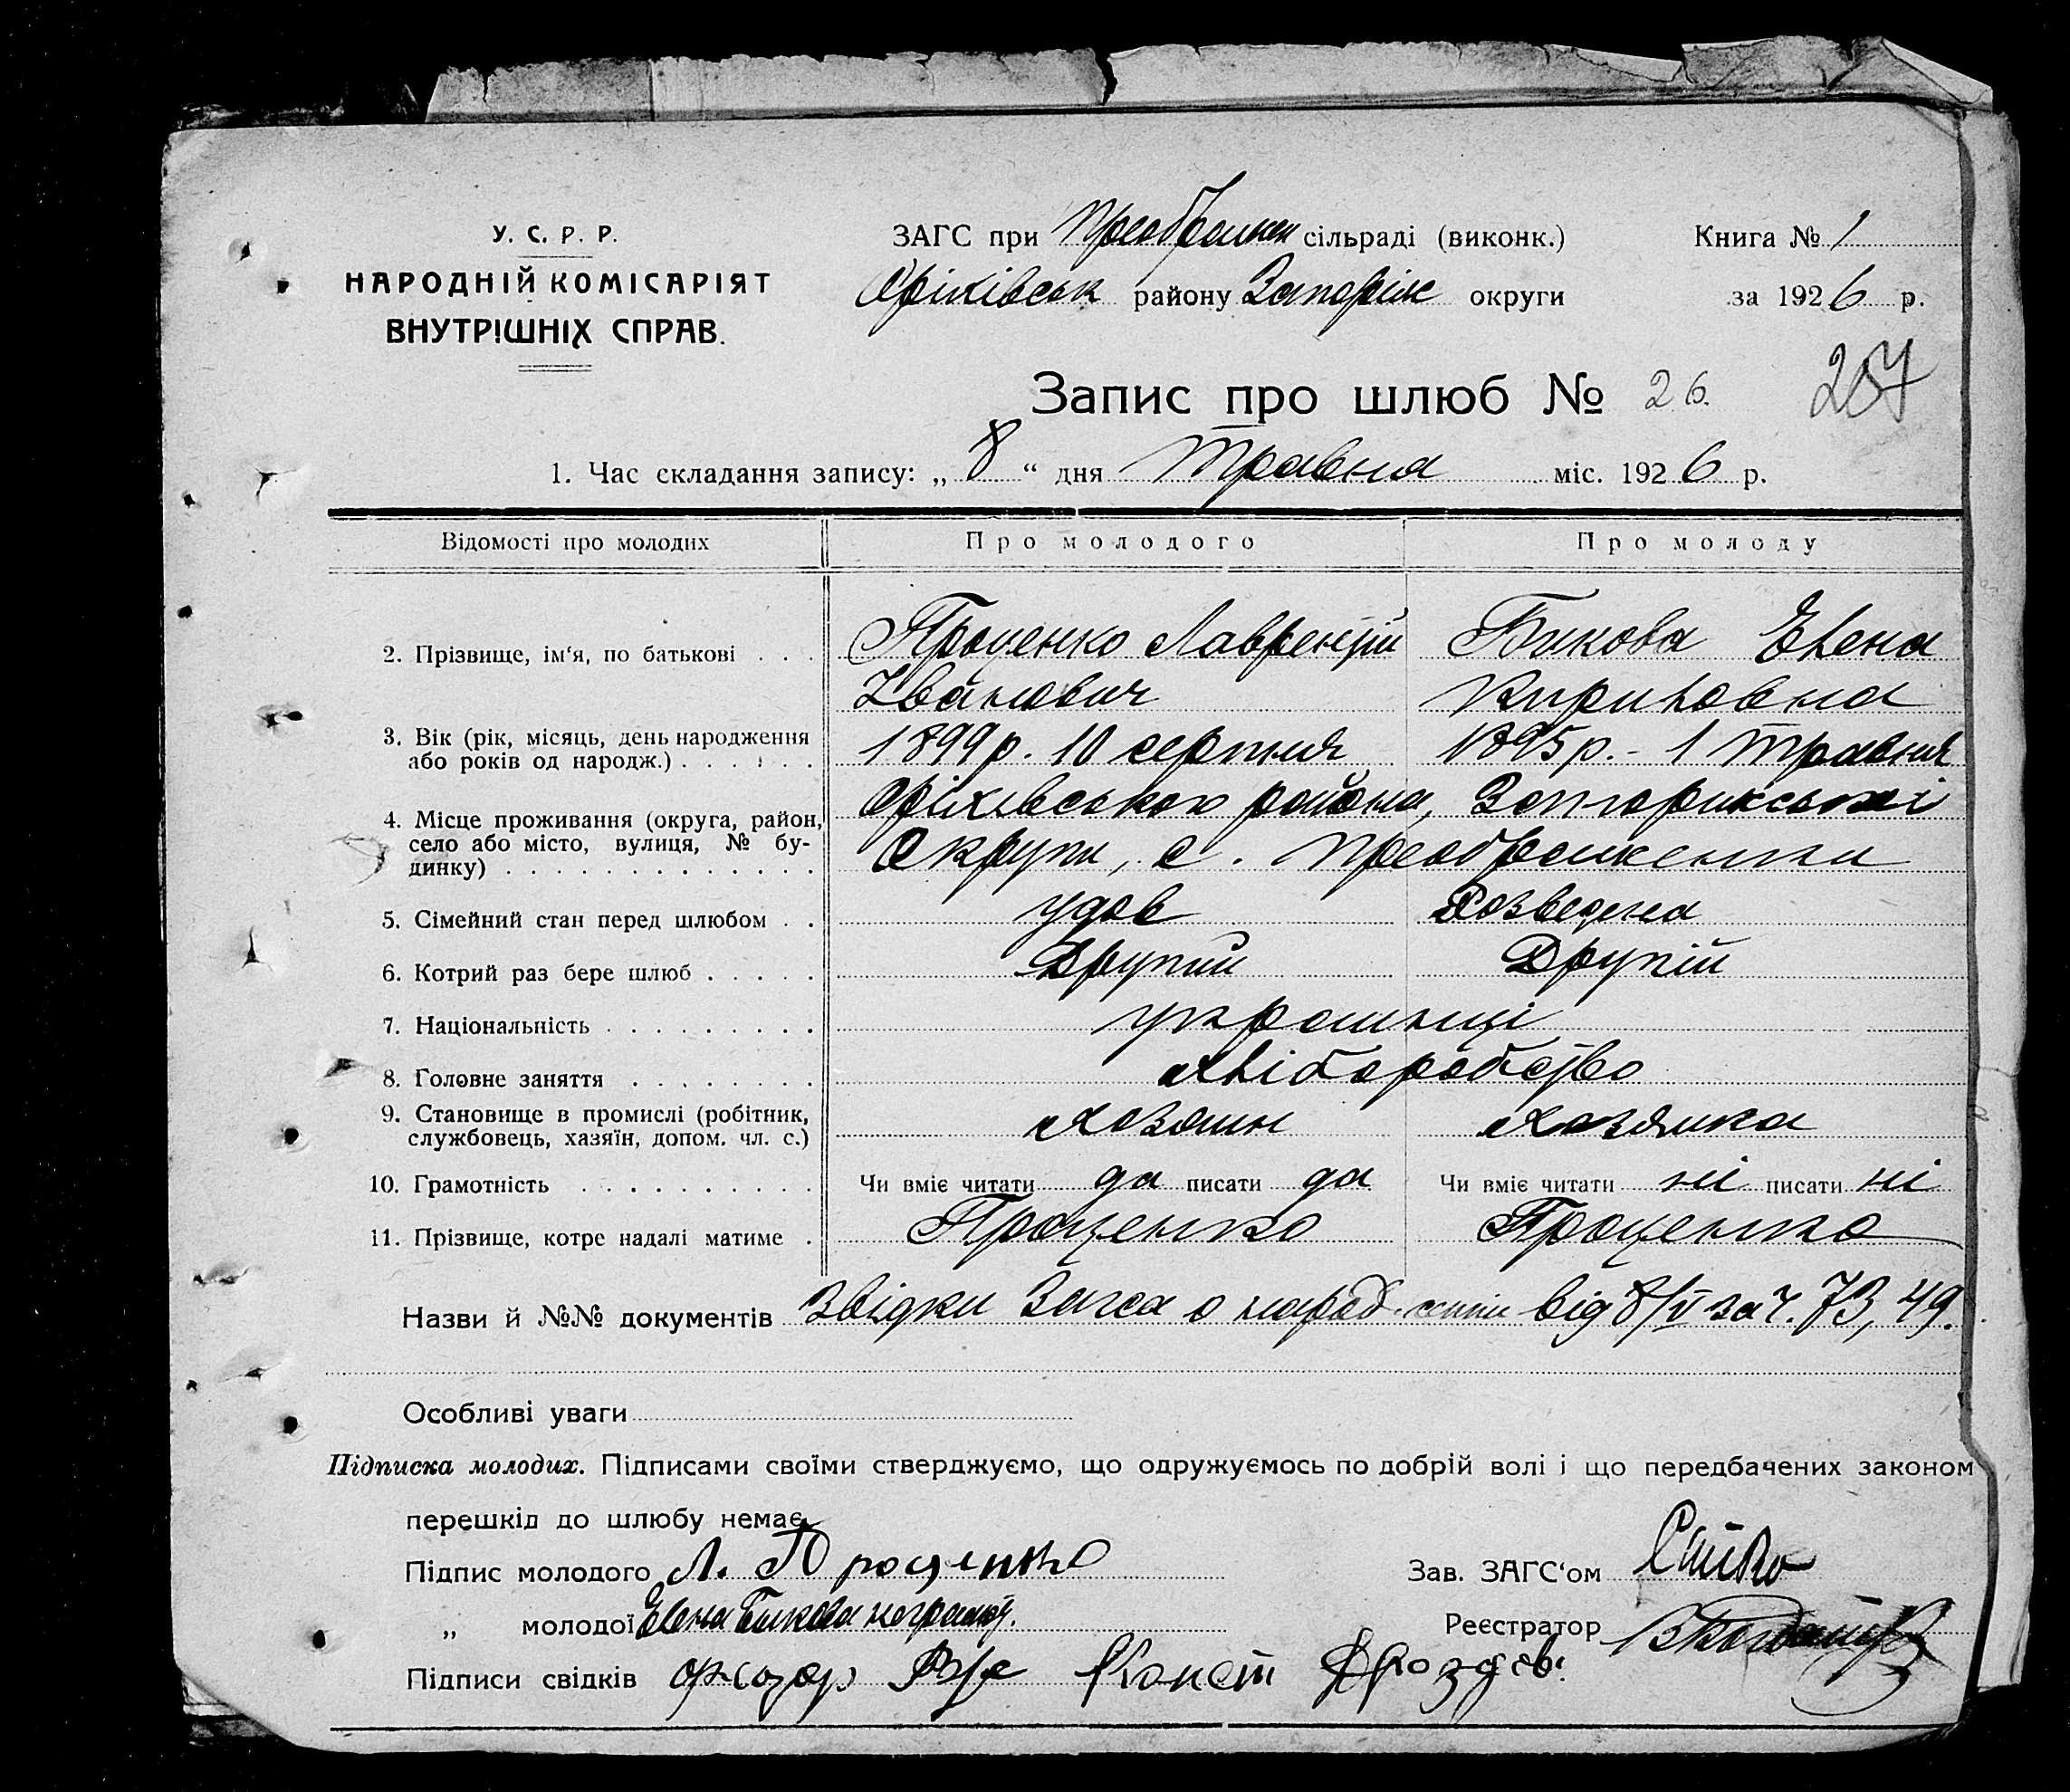 У. С. Р. Р.
НАРОДНІЙ КОМІСАРІЯТ
ВНУТРІШНІХ СПРАВ.
ЗАГС при Преображен сільраді (виконк.)
Книга № 1
Оріхівськ району Запоріж округи
за 1926 р.
Запис про шлюб № 26.
257
1. Час складання запису: „8“ дня Травня міс. 1926 р.
Відомості про молодих
Про молодого
Про молоду
2. Прізвище, ім‘я, по батькові
Проценко Лаврентій
Іванович
Бикова Елена
Кириловна
3. Вік (рік, місяць, день народження
або років од народж.)
1899 р. 10 серпня
1895 р. - 1 травня
4. Місце проживання (округа, район,
село або місто, вулиця, № бу-
динку)
Оріхівського района, Запорижської
Округи, с. Преображенка
5. Сімейний стан перед шлюбом
удов
Розведена
6. Котрий раз бере шлюб
Другий
Другій
7. Національність
українці
8. Головне заняття
хліборобство
9. Становище в промислі (робітник,
службовець, хазяїн, допом. чл. с.)
хозяин
хозяика
10. Грамотність
Чи вміє читати да писати да
Чи вміє читати ні писати ні
11. Прізвище, котре надалі матиме
Проценко
Проценко
Назви й №№ документів Звідки Загса о народ. від 8/V за ч. 73, 49.
Особливі уваги
Підписка молодих. Підписами своїми стверджуємо, що одружуємось по добрій волі і що передбачених законом
перешкід до шлюбу немає
Підпис молодого Л. Проценко
Зав. ЗАГС‘ом
„ молодої Елена Бикова неграмот.
Реєстратор
Підписи свідків Конст Дроздов.